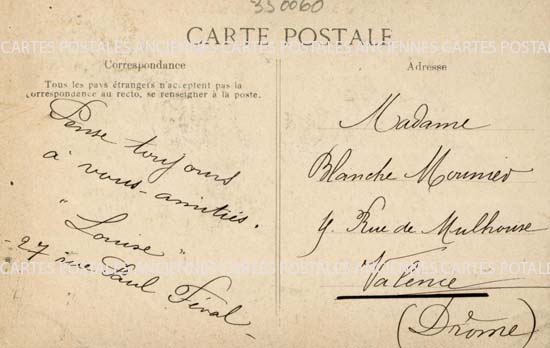 350060
CARTE POSTALE
CARTES POSTALES ANCIENNES CARTES POSTALES ANCIENNES CARTES POSTALES
Correspondance
Tous les pays étrangers n'acceptent pas la
correspondance au recto, se renseigner à la poste.
Pense toujours
à vous - amitiés.
"Louise"
- 27 rue Paul Féval -
Adresse
Madame
Blanche Mounier
Rue de Mulhouse
Valence
(Drôme)